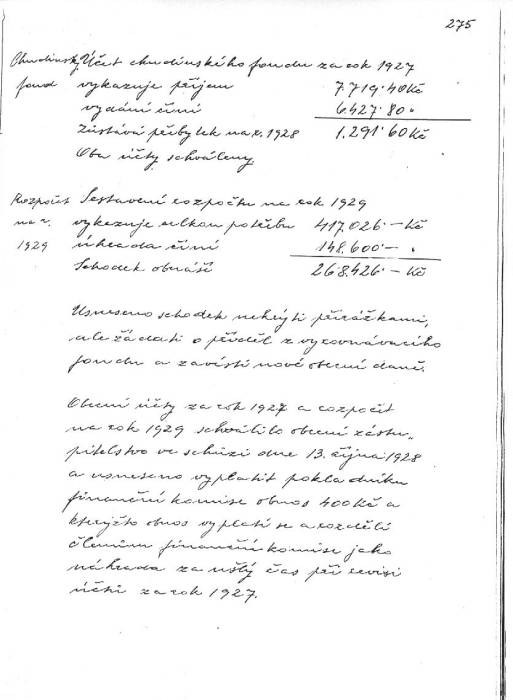 275
Chudinský Účet chudinského fondu za rok 1927
fond vykazuje příjem 7.719.40 Kč
vydání činí 6.427.80 "
zůstává přebytek na r. 1928 1.291.60 Kč
Oba účty schváleny.
Rozpočet Sestavení rozpočtu na rok 1929
na r. vykazuje celkou potřebu 417.026.- Kč
1929 úhrada činí 148.600.- "
Schodek obnáší 268.426.- Kč
Usneseno schodek nekrýti přirážkami,
ale žádati o příděl z vyrovnávacího
fondu a zavésti nové obecní daně.
Obecní účty za rok 1927 a rozpočet
na rok 1929 schválilo obecní zastu-
pitelstvo ve schůzi dne 13. října 1928
a usneseno vyplatit pokladníku
finanční komise obnos 400 Kč a
kterýžto obnos vyplatí se a rozdělí
členům finanční komise jako
náhrada za ušlý čas při revisi
účtů za rok 1927.